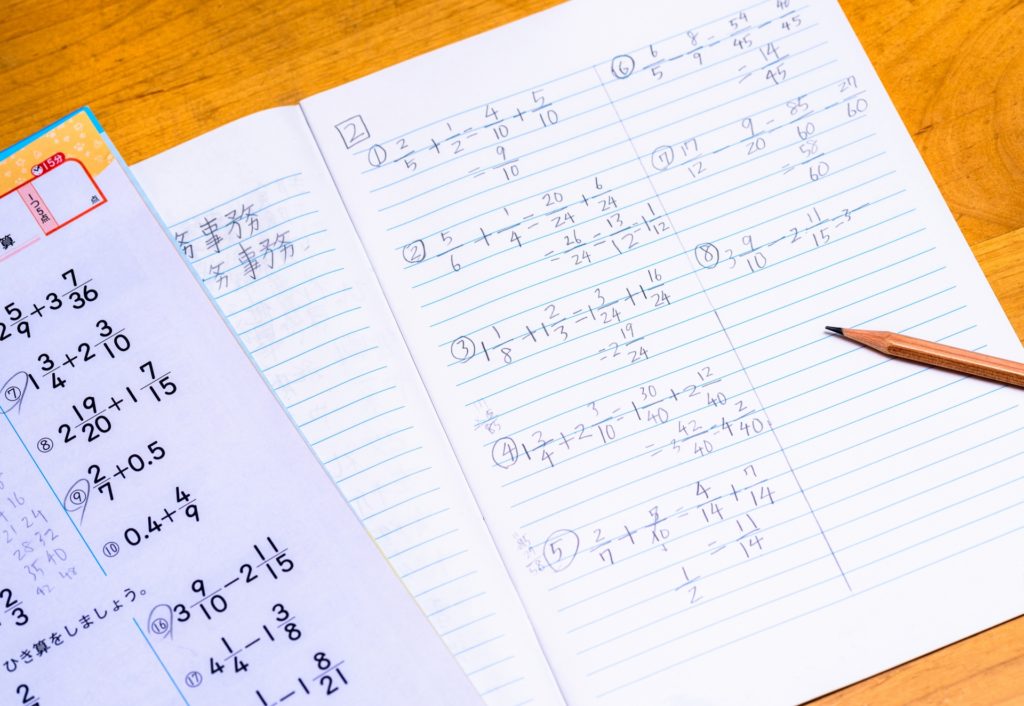 15分
1つ5点
点
算
2 5/9 + 3 7/36
⑦ 1 3/4 + 2 3/10
⑧ 2 19/20 + 1 7/15
⑨ 2/7 + 0.5
⑩ 0.4 + 4/9
16
21 24
28 32
35 40
42 48
2/3
ひき算をしましょう。
⑯ 3 9/10 - 2 11/15
⑰ 4 1/4 - 1 3/8
- 1 8/21
事務
務 事務
2
① 2/5 + 1/2 = 4/10 + 5/10
= 9/10
② 5/6 + 1/4 = 20/24 + 6/24
= 26/24 = 13/12 = 1 1/12
③ 1 1/8 + 1 2/3 = 1 3/24 + 1 16/24
= 2 19/24
④ 1 3/4 + 2 3/10 = 1 30/40 + 2 12/40
= 3 42/40 = 4 2/40
⑤ 2/7 + 5/10 = 4/14 + 7/14
= 11/14
1/2
⑥ 6/5 - 8/9 = 54/45 - 40/45
= 14/45
⑦ 17/12 - 9/20 = 85/60 - 27/60
= 58/60
⑧ 3 9/10 - 2 11/15 = 3